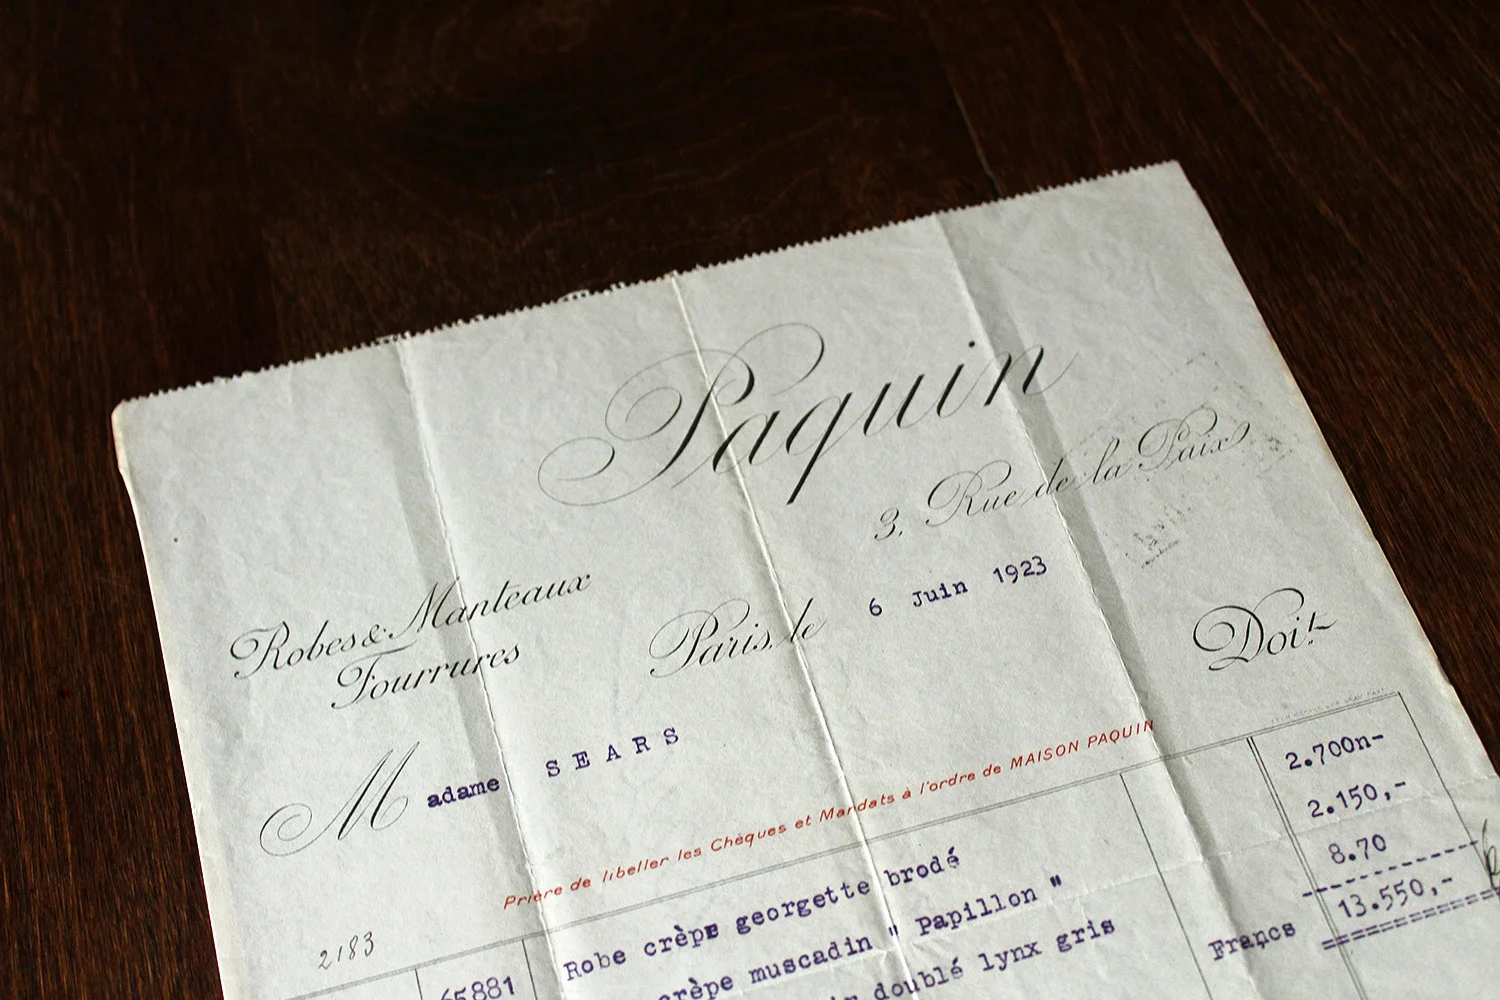 Paquin
3, Rue de la Paix
Robes & Manteaux
Fourrures
Paris, le 6 Juin 1923
Doit
Madame SEARS
Prière de libeller les Chèques et Mandats à l'ordre de MAISON PAQUIN
2183
65881 Robe crêpe georgette brodé 2.700n-
crêpe muscadin " Papillon " 2.150,-
doublé lynx gris 8.70
Francs 13.550,-